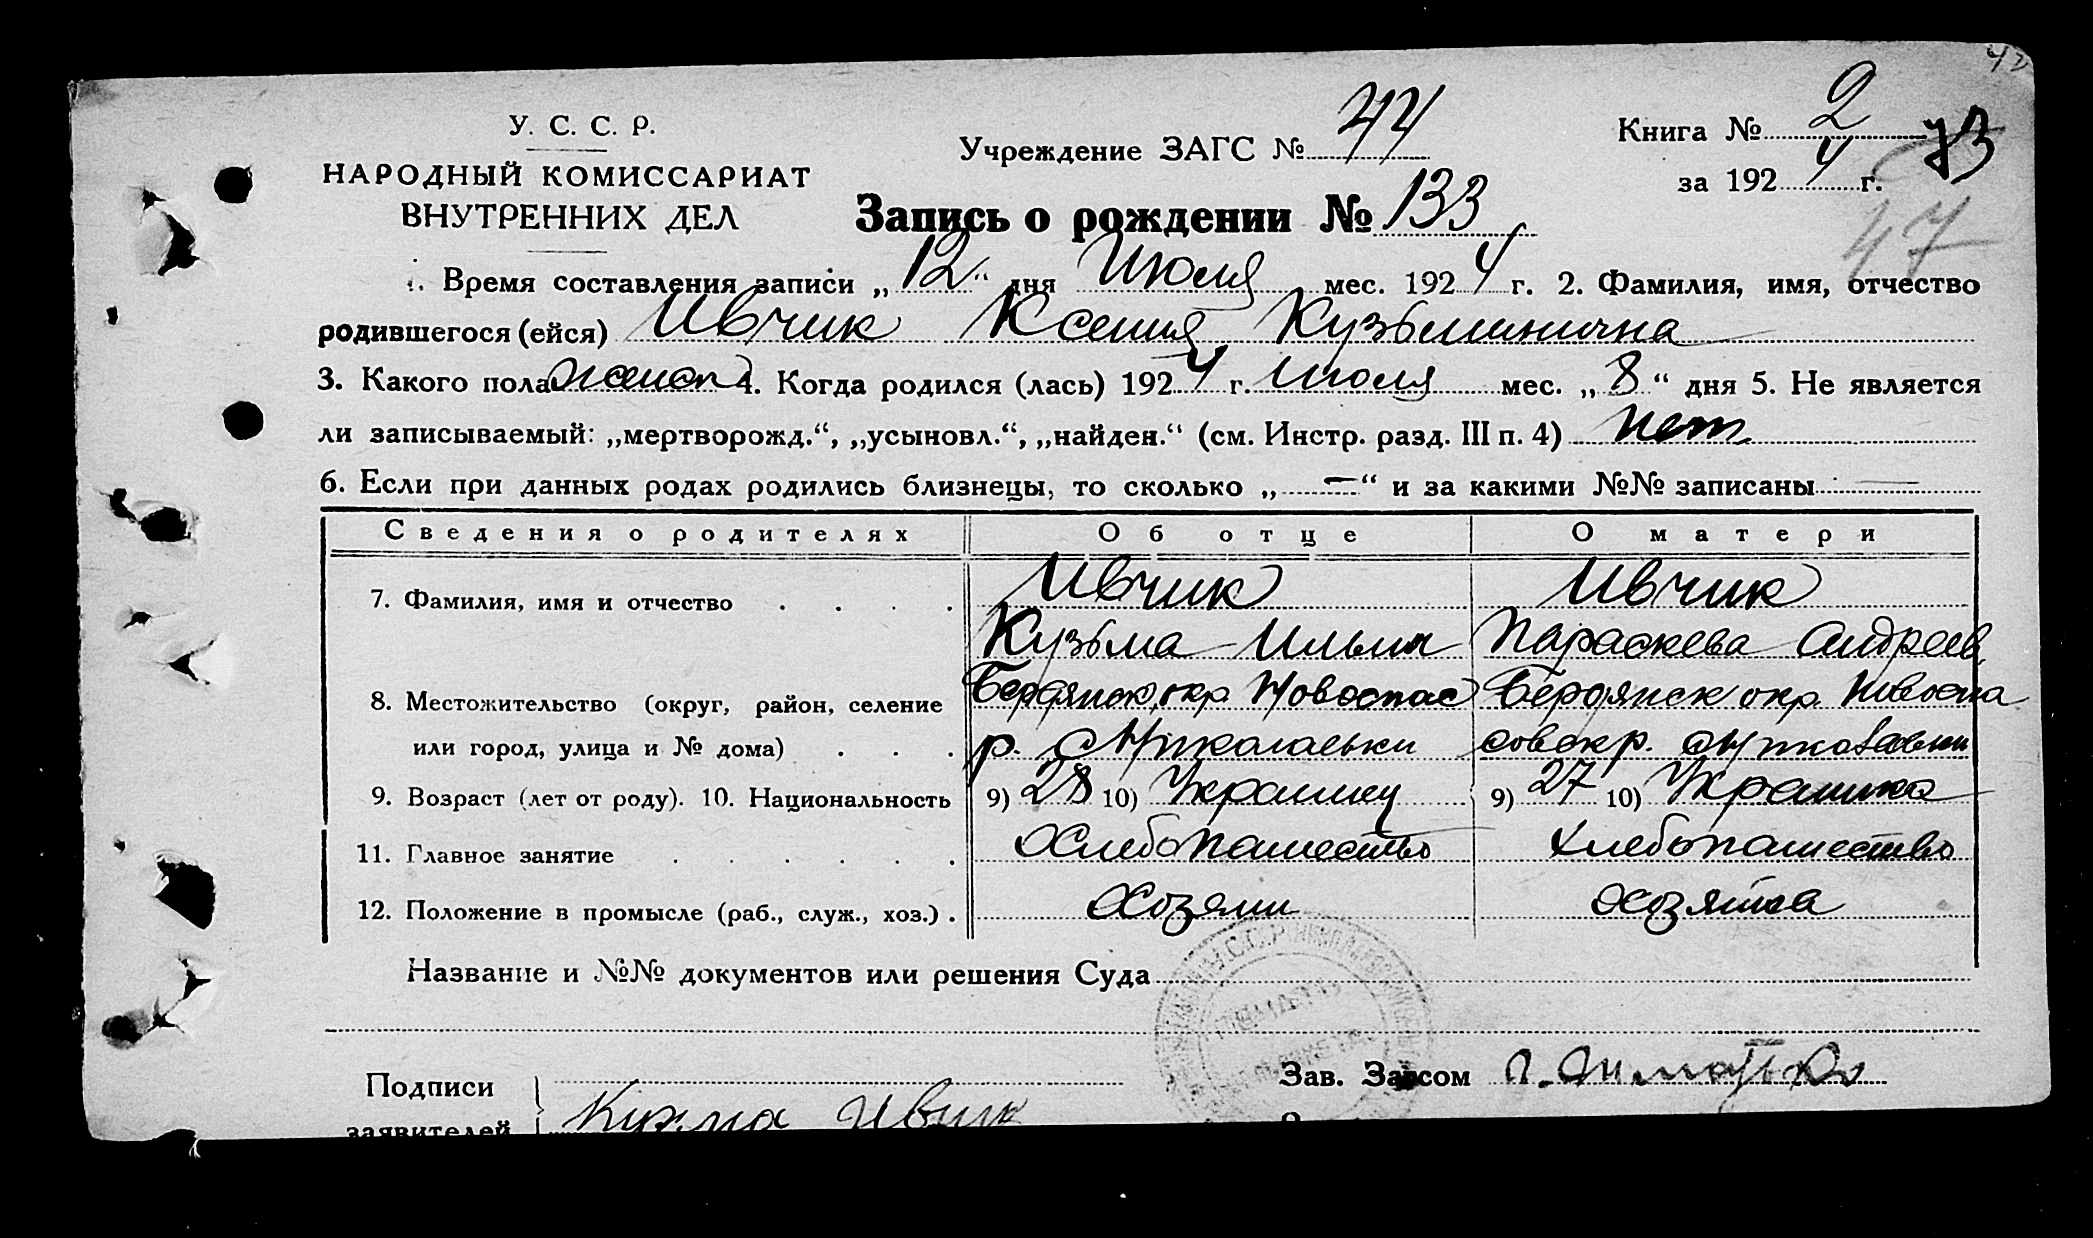 42
У. С. С. Р.
НАРОДНЫЙ КОМИССАРИАТ
ВНУТРЕННИХ ДЕЛ
Учреждение ЗАГС № 44
Книга № 2
73
за 1924 г.
47
Запись о рождении № 133
1. Время составления записи „12“ дня Июля мес. 1924 г. 2. Фамилия, имя, отчество
родившегося (ейся) Ивчик Ксения Кузьминична
3. Какого пола женск 4. Когда родился (лась) 1924 г. Июля мес. „8“ дня 5. Не является
ли записываемый: „мертворожд.“, „усыновл.“, „найден.“ (см. Инстр. разд. III п. 4) нет
6. Если при данных родах родились близнецы, то сколько „—“ и за какими №№ записаны —
Сведения о родителях Об отце О матери
7. Фамилия, имя и отчество . . . . Ивчик Ивчик
Кузьма Ильич Параскева Андреев.
8. Местожительство (округ, район, селение Бердянск окр. Новоспас Бердянск окр. Новоспа
или город, улица и № дома) . . . р. с Николаевки совск р. с Николаевки
9. Возраст (лет от роду). 10. Национальность 9) 28 10) Украинец 9) 27 10) Украинка
11. Главное занятие . . . . . . Хлебопашество Хлебопашество
12. Положение в промысле (раб., служ., хоз.) . Хозяин Хозяйка
Название и №№ документов или решения Суда
Подписи
заявителей
Кузма Ивчик
Зав. Загсом